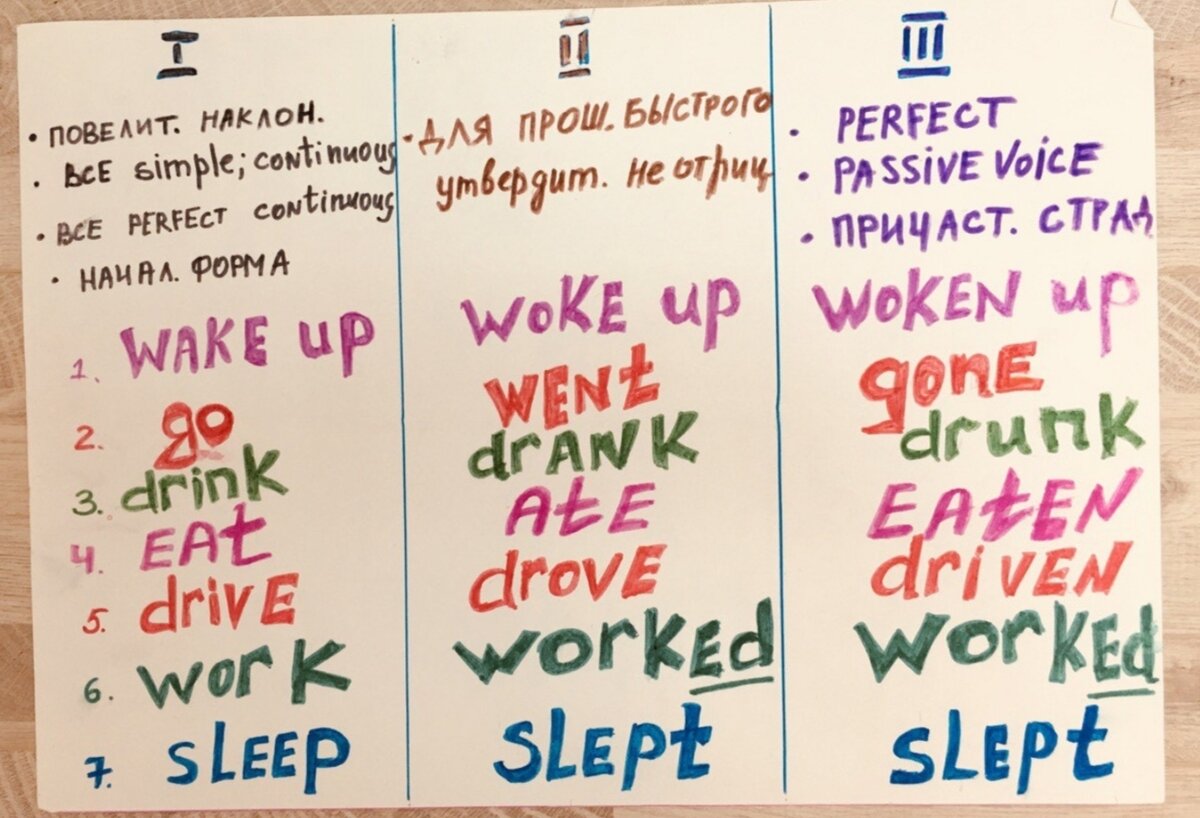 I
• ПОВЕЛИТ. НАКЛОН.
• ВСЕ simple; continuous
• ВСЕ PERFECT continuous
• НАЧАЛ. ФОРМА
1. WAKE up
2. go
3. drink
4. EAt
5. drivE
6. work
7. SLEEP
II
• ДЛЯ ПРОШ. БЫСТРОГО
утвердит. не отриц
WOKE up
WENt
drANK
AtE
drovE
workEd
SLEpt
III
• PERFECT
• PASSIVE VoicE
• ПРИЧАСТ. СТРАД
WOKEN up
gonE
drunk
EAtEN
drivEN
workEd
SLEpt